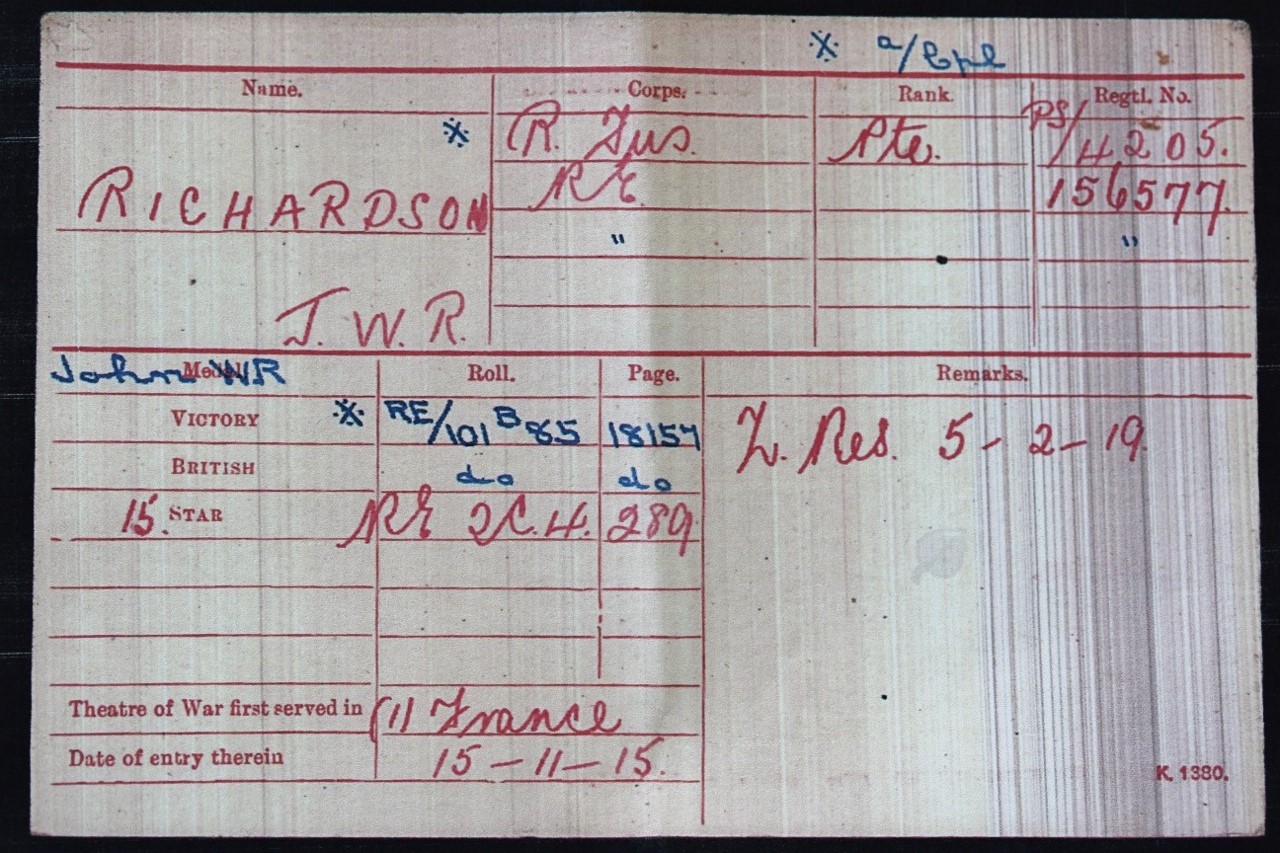 ※ a/Cpl
Name. Corps. Rank. Regtl. No.
※ R. Fus. Pte. PS/4205.
RICHARDSON R E. 156577.
" "
J. W. R.
John WR
Medal. Roll. Page. Remarks.
VICTORY ※ RE/101 B 85 18157 Z. Res. 5-2-19.
BRITISH do do
15. STAR RE 2C.H. 289.
Theatre of War first served in (1) France
Date of entry therein 15-11-15.
K. 1380.